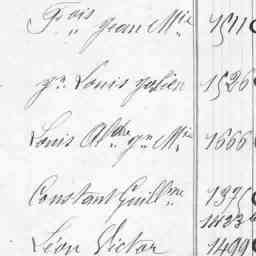 F.ois Jean M.ie 1511
Jn Louis Julien 1526
Louis Al.dre Jn M.ie 1666
Constant Guill.me 1375
1423
Léon Victor 1499